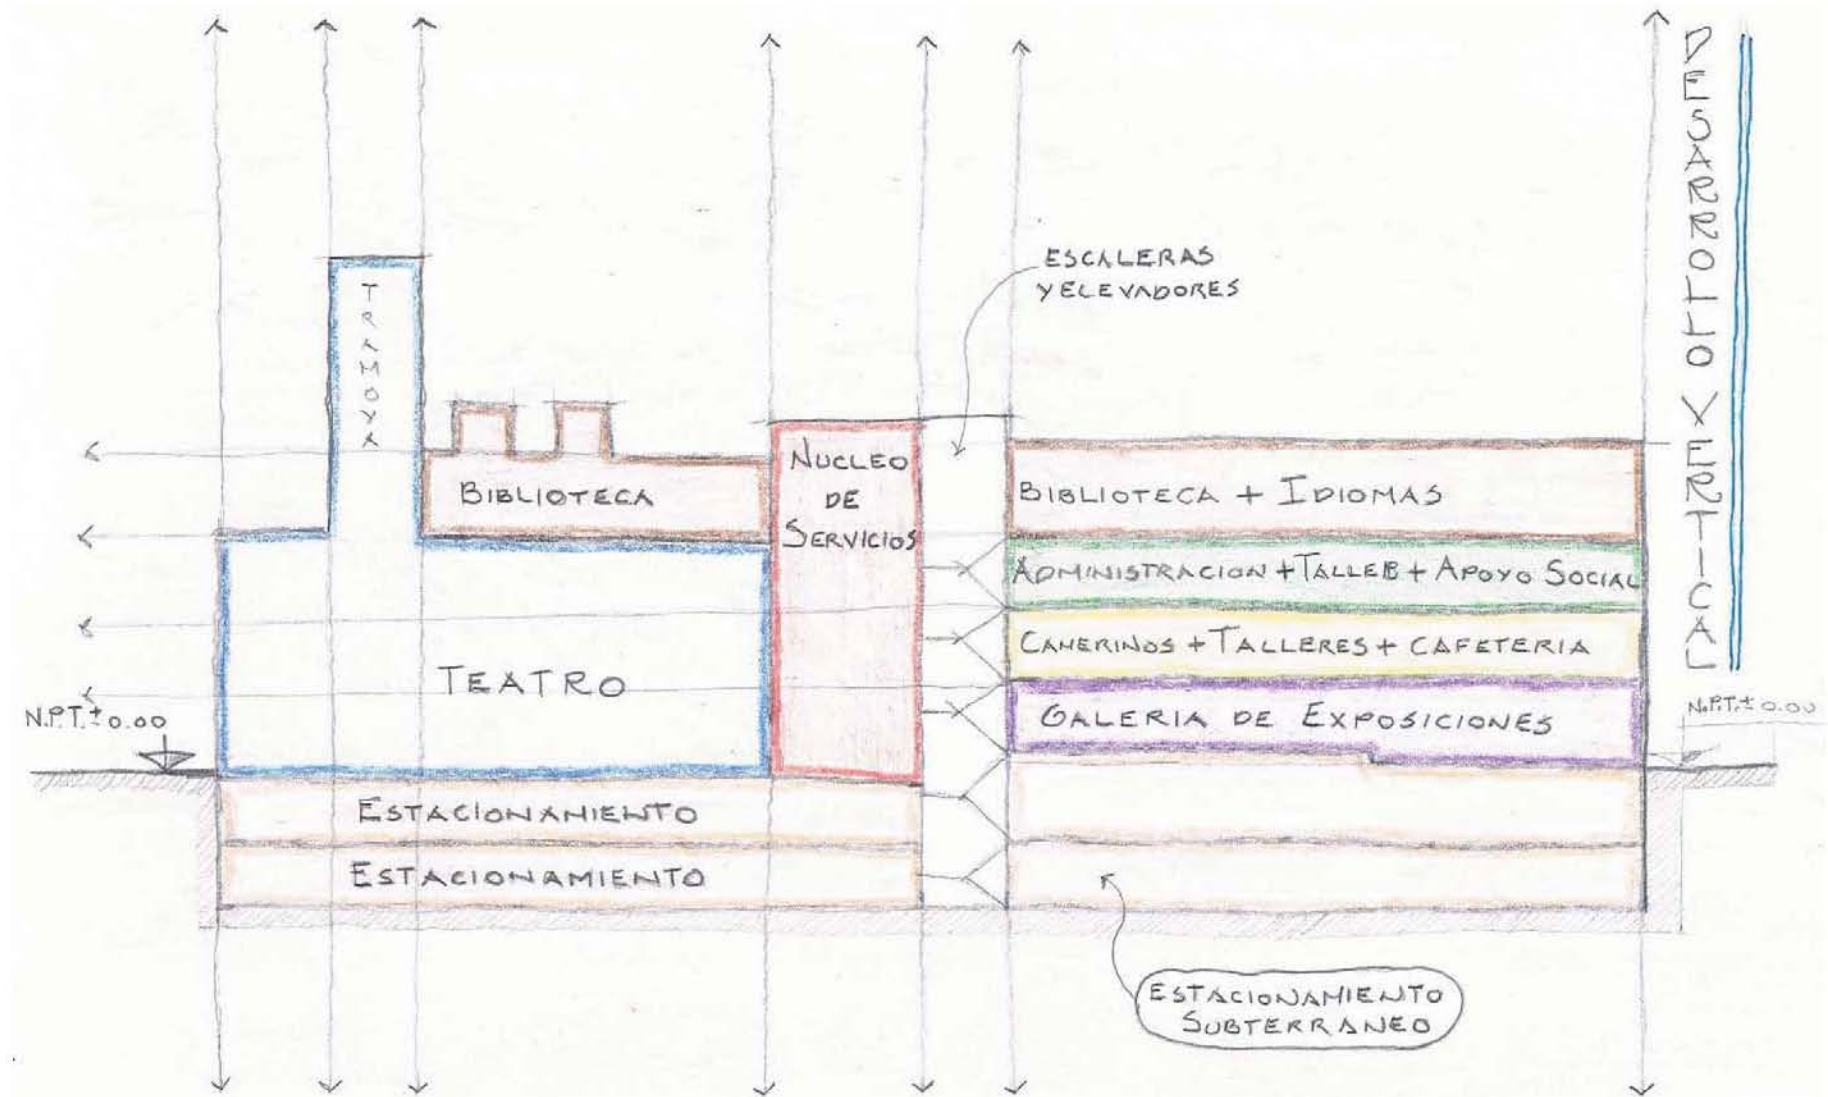 DESARROLLO VERTICAL
ESCALERAS
Y ELEVADORES
TRAMOYA
NUCLEO
DE
SERVICIOS
BIBLIOTECA
BIBLIOTECA + IDIOMAS
ADMINISTRACION + TALLER + APOYO SOCIAL
CAMERINOS + TALLERES + CAFETERIA
TEATRO
GALERIA DE EXPOSICIONES
N.P.T. ± 0.00
N.P.T. ± 0.00
ESTACIONAMIENTO
ESTACIONAMIENTO
ESTACIONAMIENTO
SUBTERRANEO